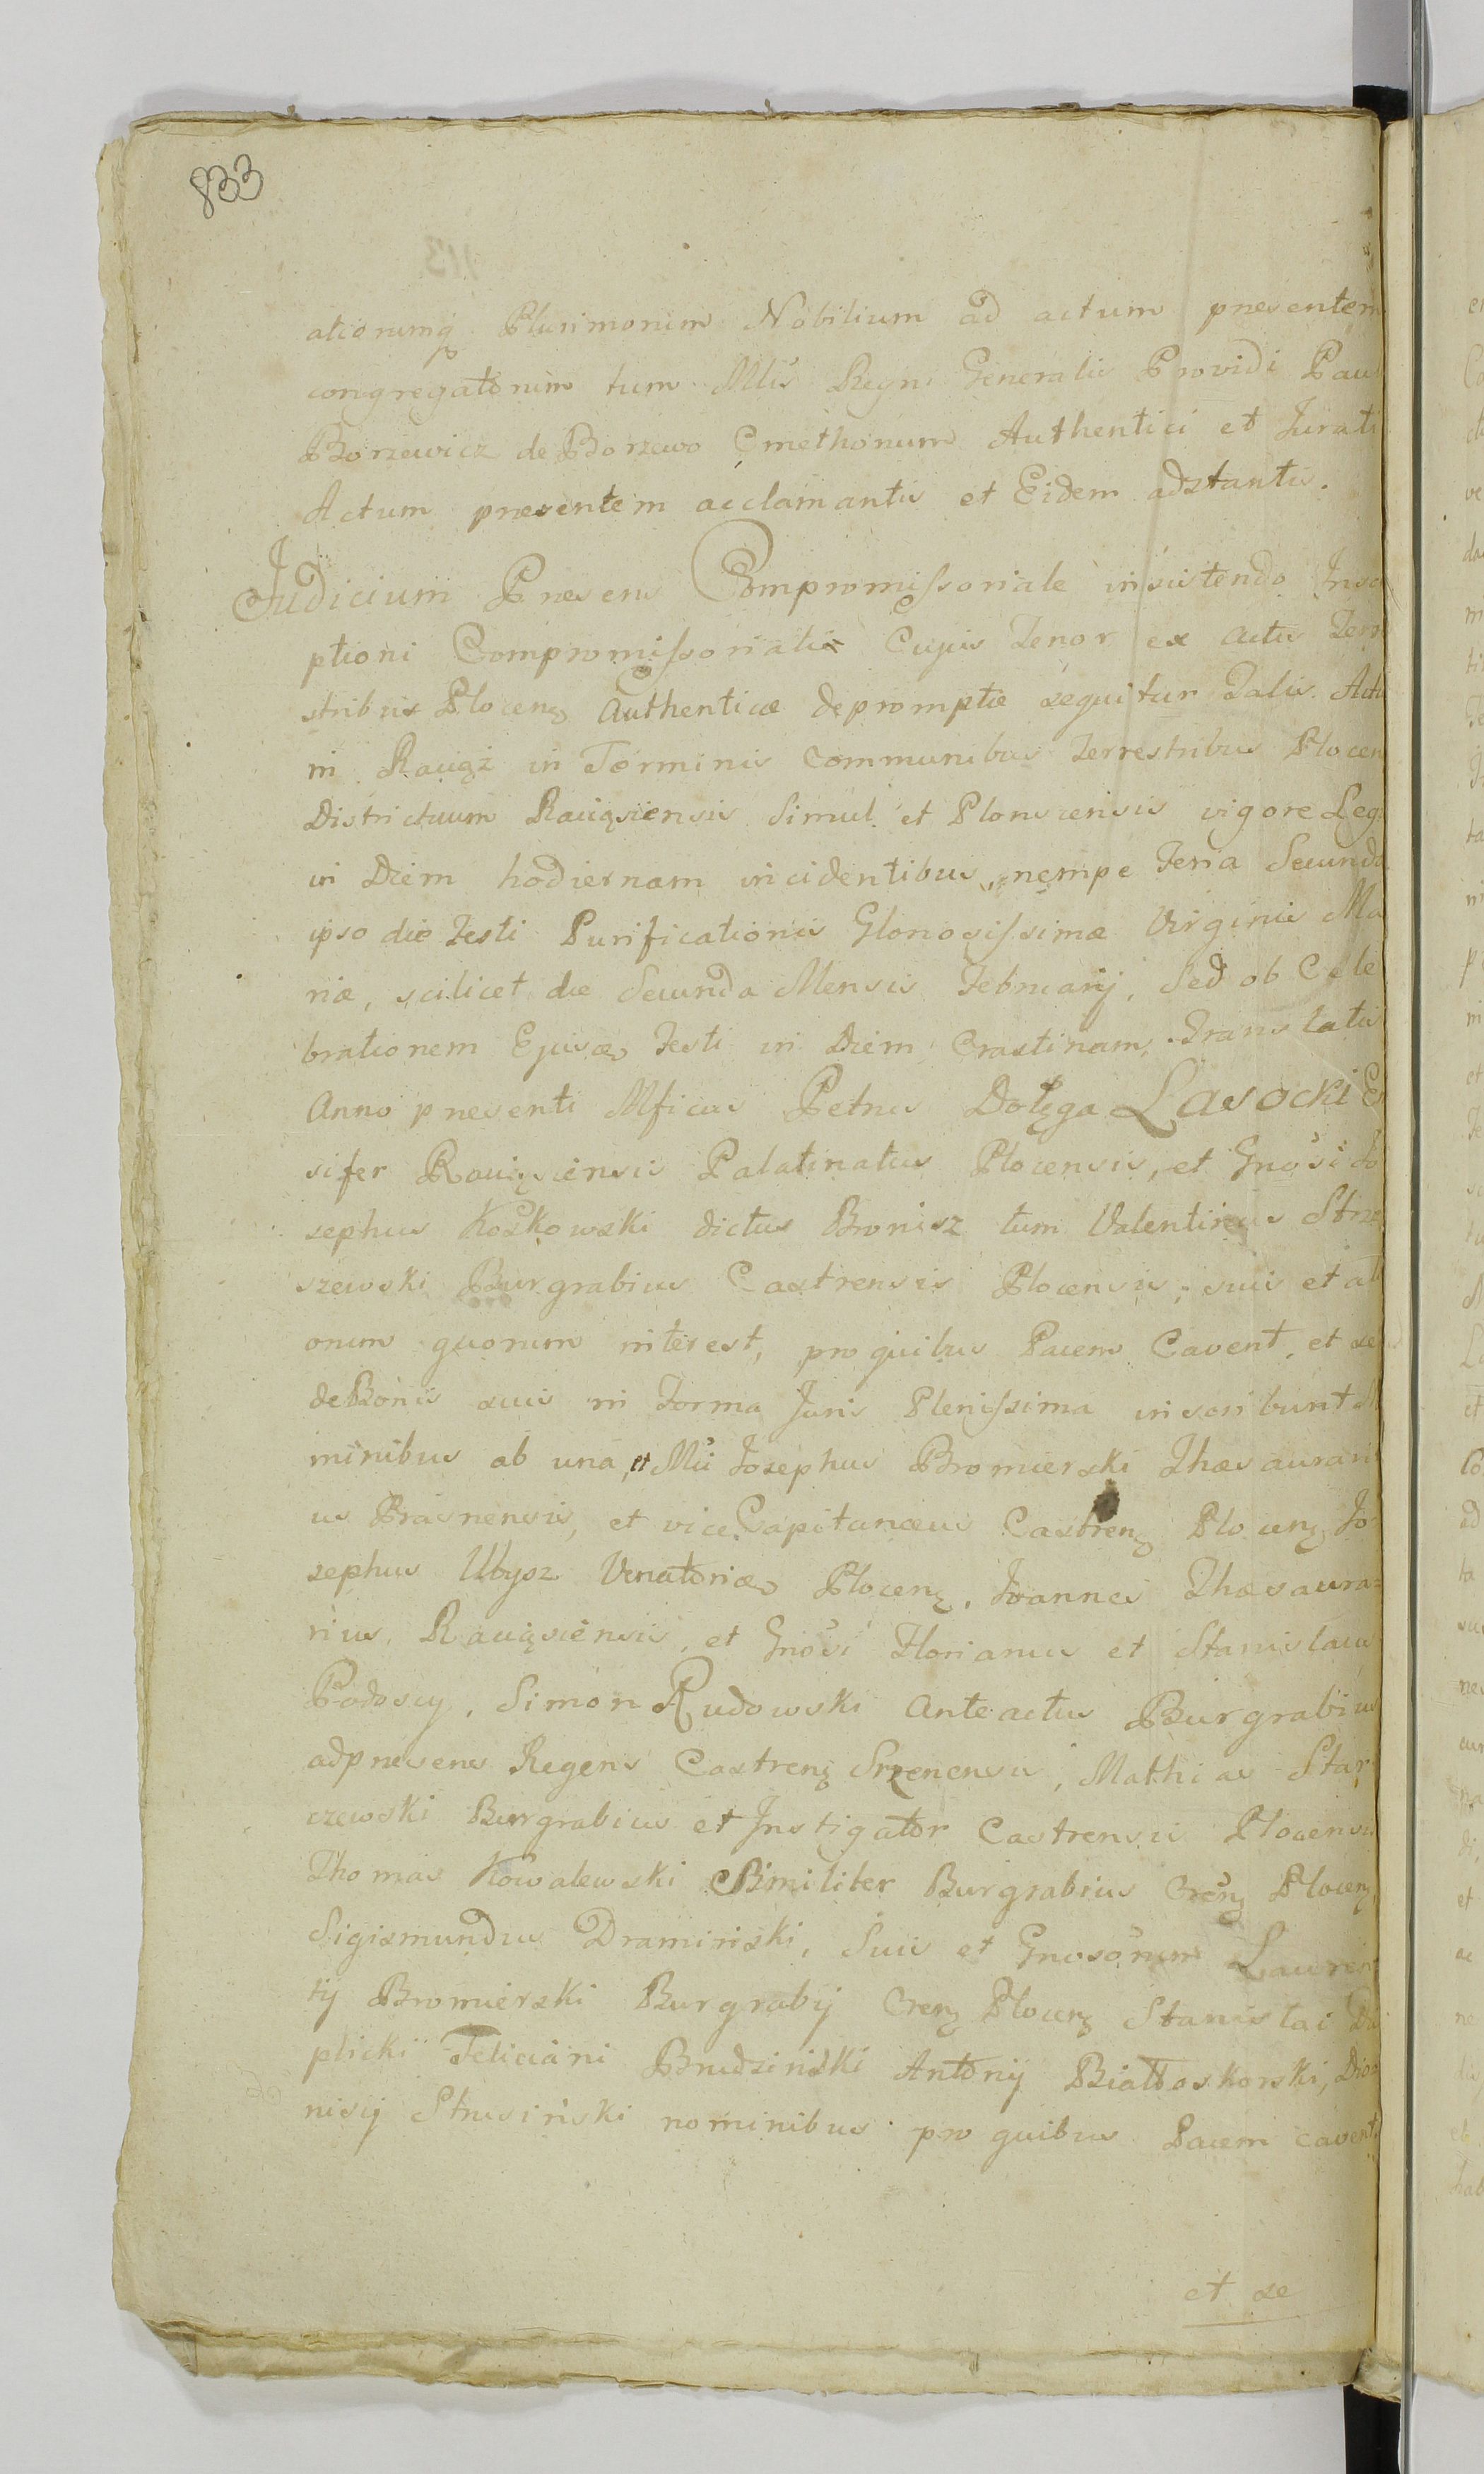 833
ationumq Plurimorum Nobilium ad actum presentem
congregatorum tum Mlis Regni Generalis Providi Pau
Borzewicz de Borzewo Cmethonum Authentici et Jurati
Actum presentem acclamantis et Eidem adstantis.
Judicium Presens Compromissoriale insistendo Inscri
ptioni Compromissorialis Cujus Tenor ex actis Terre
stribus Plocens Authentice depromptæ sequitur Talis. Actu
in Raciąż in Terminis Communibus Terrestribus Plocen
Districtuum Raciąziensis Simul et Plonscensis vigore Leg
in Diem hodiernam incidentibus, nempe Feria Secunda
ipso die Festi Purificationis Gloriosissimæ Virginis Ma
riæ, scilicet die Secunda Mensis Februarij, Sed ob Cele
brationem Ejusd Festi in Diem Crastinam, Translatis
Anno presenti Mficus Petrus Dołęga Lasocki En
sifer Raciąziensis Palatinatus Plocensis, et Gnosi Jo
sephus Koskowski dictus Bronisz tum Valentinus Strze
szewski Burgrabius Castrensis Plocensis, suis et ali
orum quorum interest, pro quibus Pacem Cavent, et se
de Bonis suis in Forma Juris Plenissima inscribunt No
minibus ab una, et Mii Josephus Bromierski Thæsaurari
us Prasnensis, et vice Capitaneus Castrens Plocens Jo
sephus Ubysz Venatorid Plocens, Joannes Thæsaura=
rius Raciąziensis, et Gnosi Florianus et Stanislaus
Podoscy, Simon Rudowski Anteactus Burgrabius
adpresens Regens Castrens Srzenensis, Mathias Star
czewski Burgrabius et Instigator Castrensis Plocensis
Thomas Kowalewski Similiter Burgrabius Crens Plocens
Sigismundus Dramiński, Suis et Gnosorum Lauren
tij Bromierski Burgrabij Crens Plocens Stanislai
plicki Feliciani Brudzinski Antonij Białłoskorski, Dio
nisij Strusiński nominibus pro quibus Pacem cavent
et se